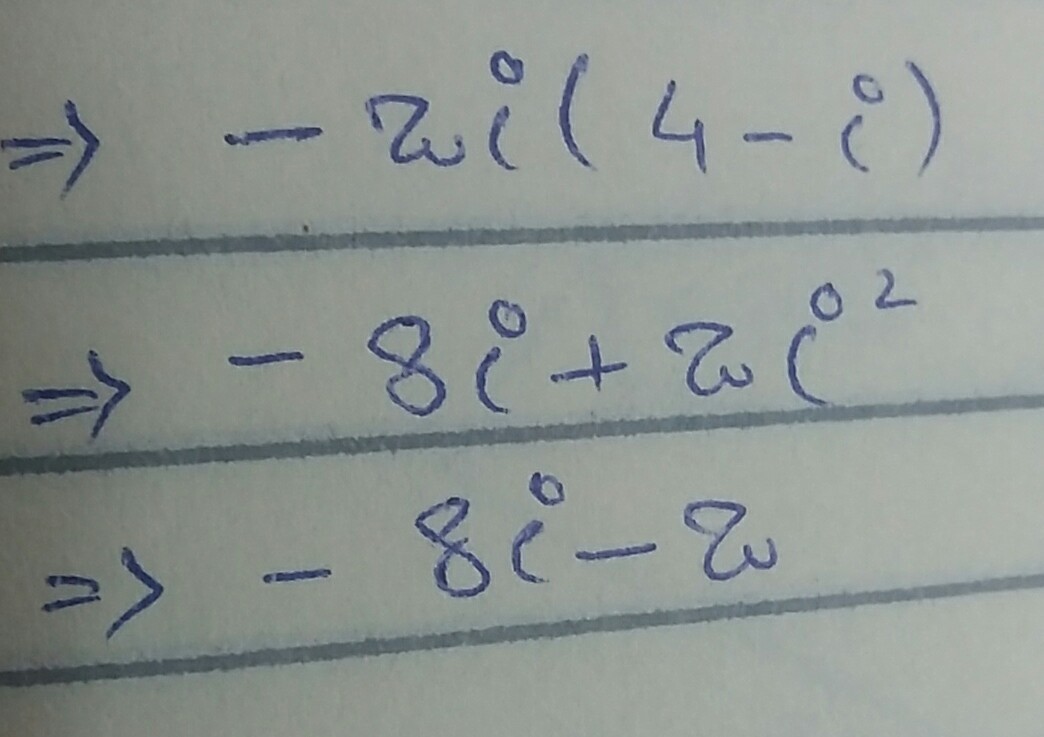 ⇒ - 2i(4 - i)
⇒ - 8i + 2i²
=> - 8i - 2